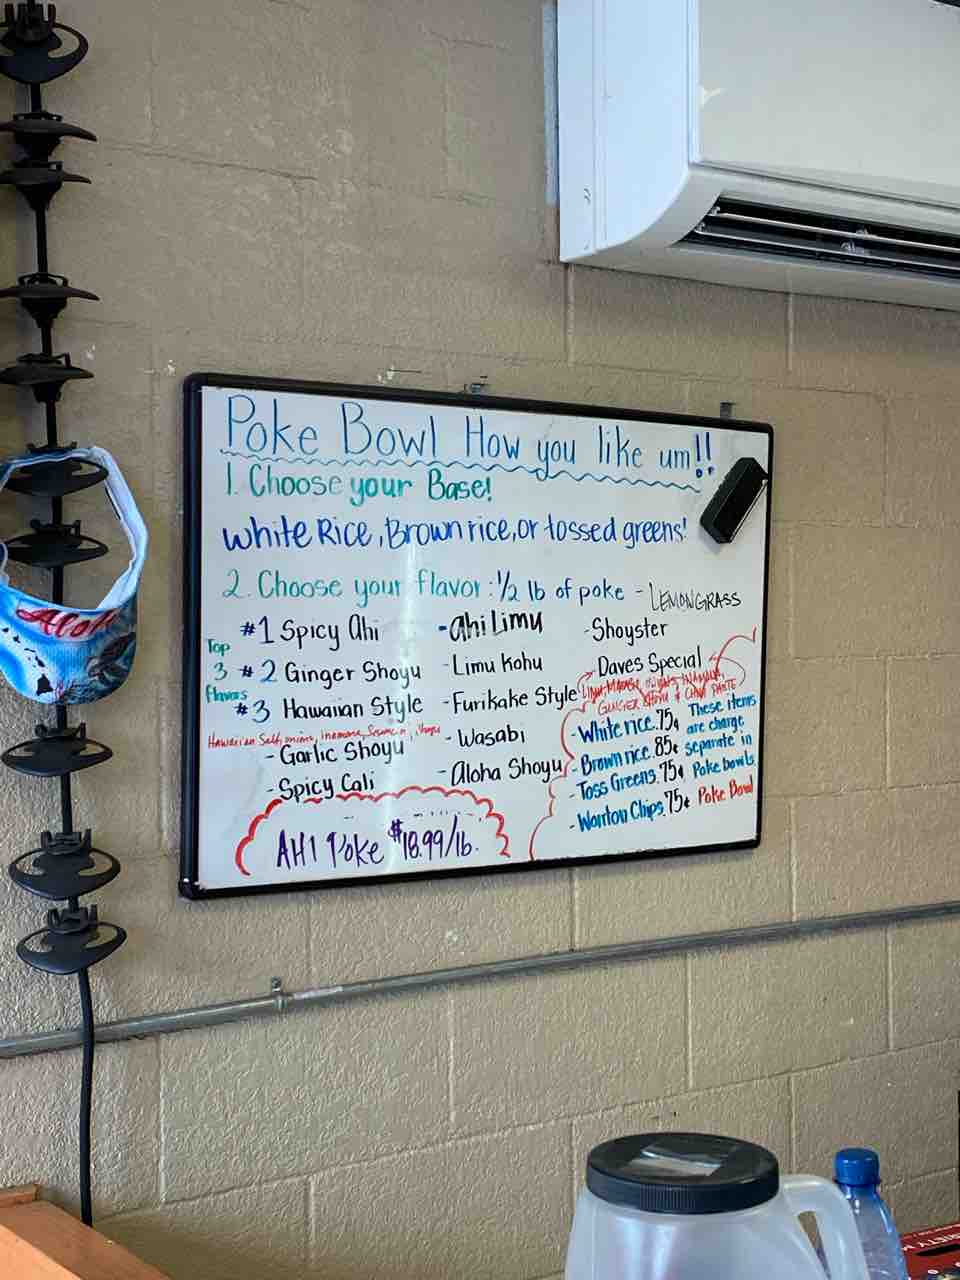 Poke Bowl How you like um!!
1. Choose your Base!
White Rice, Brown rice, or tossed greens!
2. Choose your flavor: 1/2 lb of poke
- LEMONGRASS
Top
3
flavors
#1 Spicy Ahi
#2 Ginger Shoyu
#3 Hawaiian Style
Hawaiian Salt, onions, Inamona, Sesame oil, shoyu
- Garlic Shoyu
- Spicy Cali
- Ahi Limu
- Limu Kohu
- Furikake Style
- Wasabi
- Aloha Shoyu
- Shoyster
- Daves Special
INAMONA,
GINGER SHOYU & CHILI PASTE
- White rice. 75¢
- Brown rice. 85¢
- Toss Greens. 75¢
- Wonton Chips. 75¢
These items
are charge
separate in
Poke bowls
Poke Bowl
AHI Poke $18.99/lb.
Aloha